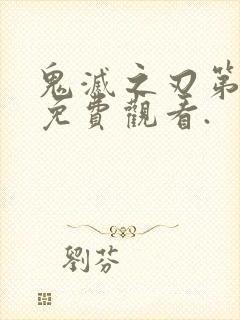 鬼滅之刃第
免費觀看.
劉芬